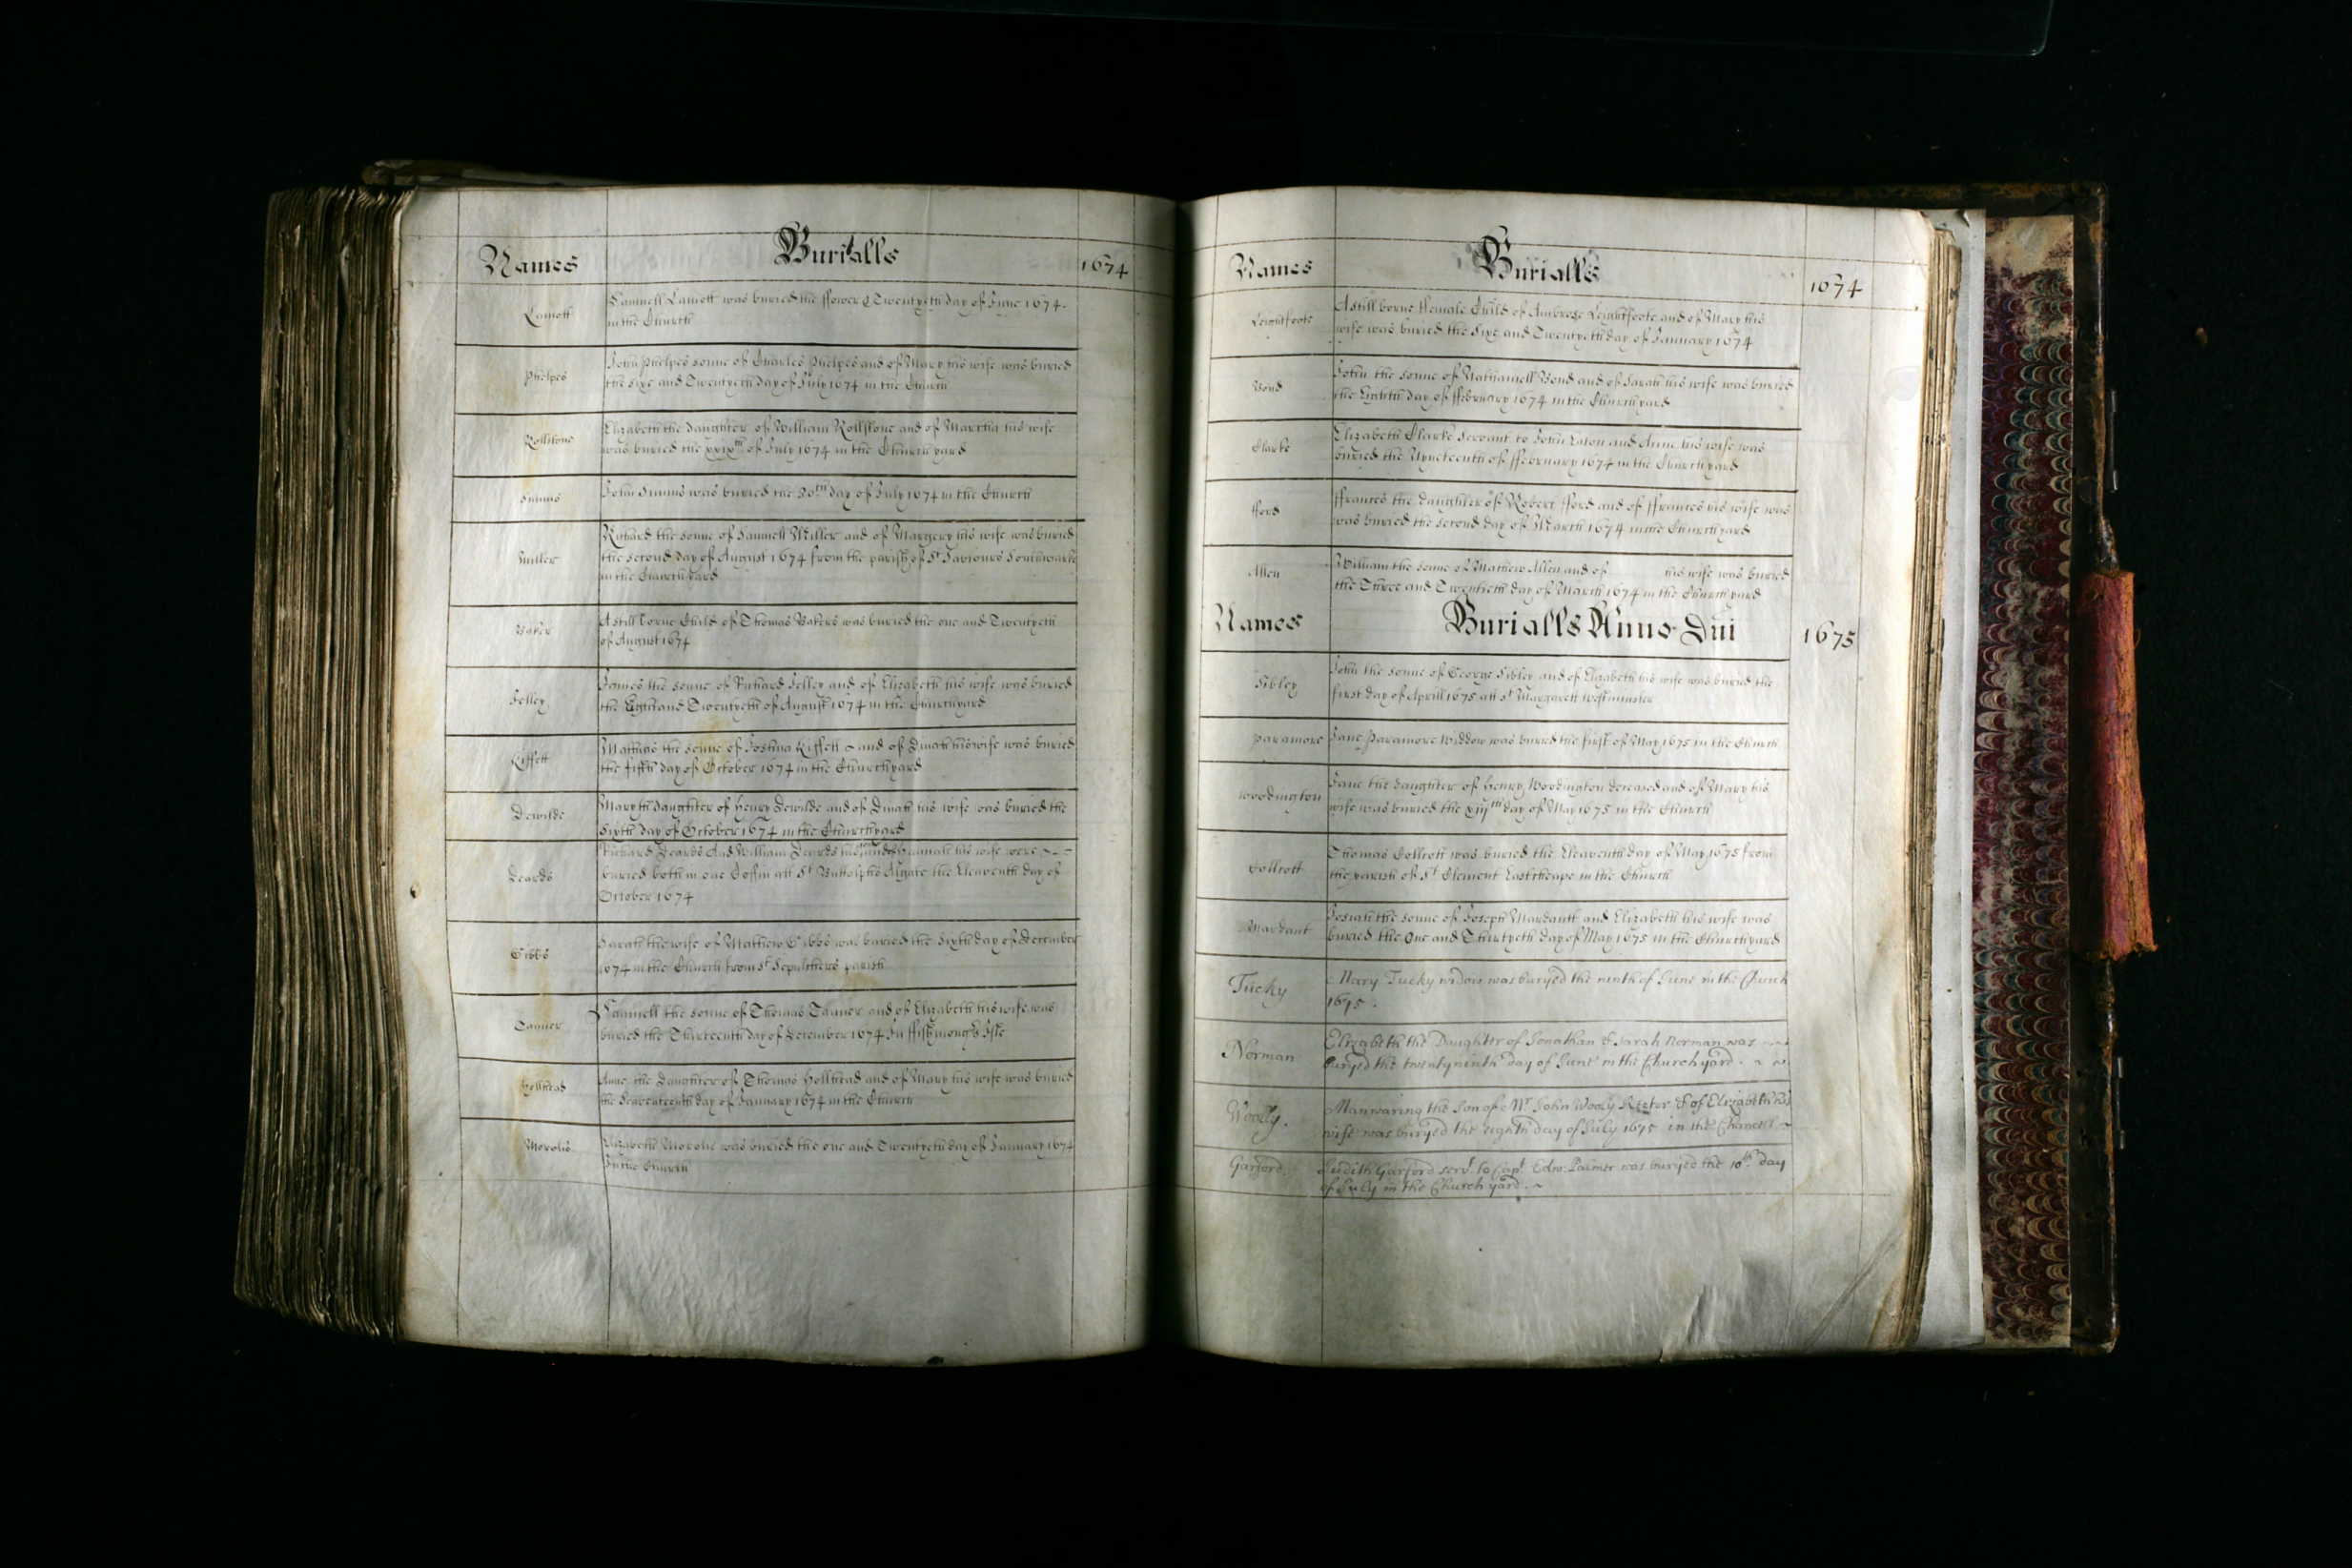 Names
Burialls
1674
Lamott
Samuell Lamott was buried the ffower & Twentyeth day of June 1674.
in the Church
Phelpes
John Phelpes sonne of Charles Phelpes and of Mary his wife was buried
the sixe and Twentyeth day of July 1674 in the Church
Rollstone
Elizabeth the daughter of William Rollstone and of Martha his wife
was buried the xxixth of July 1674 in the Church yard
Simms
John Simms was buried the 30th day of July 1674 in the Church
Miller
Richard the sonne of Samuell Miller and of Margery his wife was buried
the second day of August 1674 from the parish of St Saviours Southwarke
in the Churchyard
Baker
A still borne Child of Thomas Bakers was buried the one and Twentyeth
of August 1674
Jelley
James the sonne of Richard Jelley and of Elizabeth his wife was buried
the Eight and Twentyeth of August 1674 in the Churchyard
Kiffett
the sonne of Joshua Kiffett and of Dinah his wife was buried
the fifth day of October 1674 in the Churchyard
Dewilde
Mary th daughter of Henry Dewilde and of Dinah his wife was buried the
Sixth day of October 1674 in the Churchyard
Beards
Richard Beards And William Beards his wife were
buried both in one Coffin att St Buttolphs Algate the Eleaventh day of
October 1674
Gibbs
Sarah the wife of Mathew Gibbs was buried the Sixth day of December
1674 in the Church from St Sepulchers parish
Tanner
Samuell the sonne of Thomas Tanner and of Elizabeth his wife was
buried the Thirteenth day of December 1674 In ffishmongrs Isle
Hellhead
Anne the daughter of Thomas Hellhead and of Mary his wife was buried
the Seaventeenth day of January 1674 in the Church
Morohe
Elizabeth Morohe was buried the one and Twentyeth day of January 1674
In the Church
Names
Burialls
1674
Leightfoote
A still borne ffemale Child of Ambrose Leightfoote and of Mary his
wife was buried the Sixe and Twentyeth day of January 1674
Bond
John the sonne of Nathaniell Bond and of Sarah his wife was buried
the Eighth day of ffebruary 1674 in the Churchyard
Clarke
Elizabeth Clarke Servant to John Eaton and Anne his wife was
buried the Nyneteenth of ffebruary 1674 in the Churchyard
fford
ffrances the daughter of Robert fford and of ffrances his wife was
was buried the second day of March 1674 in the Churchyard
Allen
William the sonne of Mathew Allen and of his wife was buried
the Three and Twentieth day of March 1674 in the Church yard
Names
Burialls Anno Dni
1675
Sibley
John the sonne of George Sibley and of Elizabeth his wife was buried the
first day of Aprill 1675 att St Margarett Westminster
Paramore
Jane Paramore Widdow was buried the first of May 1675 in the Church
Woodington
Jane the daughter of Henry Woodington deceased and of Mary his
wife was buried the xiijth day of May 1675 in the Church
Collcott
Thomas Collcott was buried the Eleaventh day of May 1675 from
the parish of St Clement Eastcheape in the Church
Mardant
Josiah the sonne of Joseph Mardantt and Elizabeth his wife was
buried the One and Thirtyeth day of May 1675 in the Churchyard
Tucky
Mary Tucky widow was buryed the ninth of June in the Church
1675.
Norman
Elizabeth the Daughter of Jonathan & Sarah Norman was
buryed the twentyninth day of June in the Church yard.
Woolly.
Manwaring the Son of Mr John Wooly Rector & of Elizabeth his
wife was buryed the eighth day of July 1675 in the Chancell
Garford.
Judeth Garford servt to Capt Edw. Palmer was buryed the 10th day
of July in the Church yard.